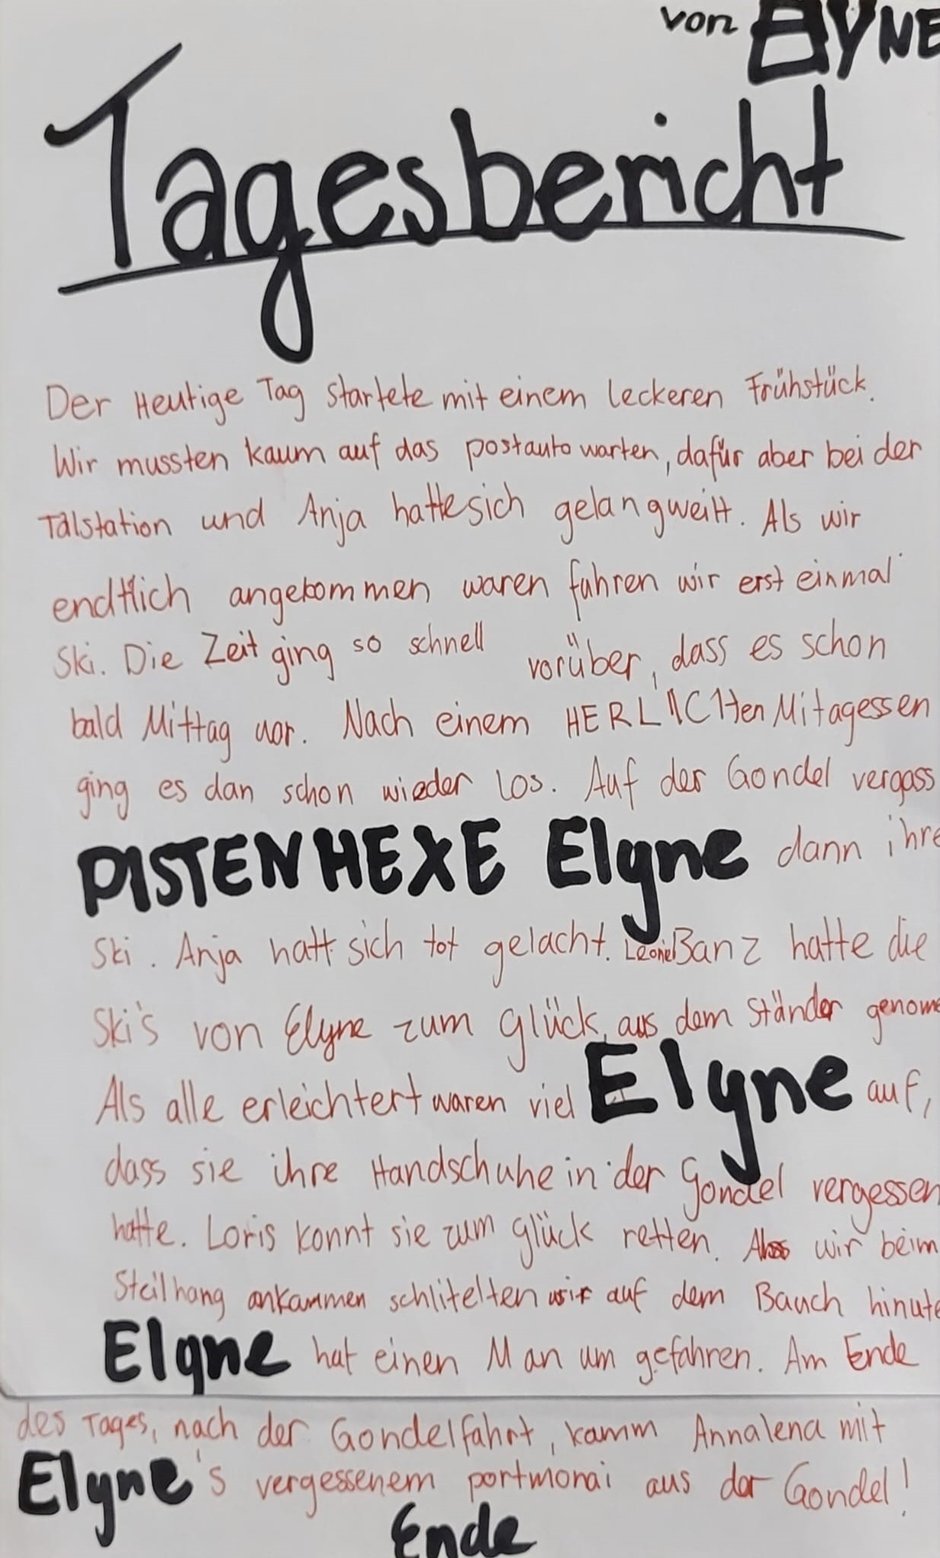 von Elyne
Tagesbericht
Der Heutige Tag startete mit einem leckeren Frühstück.
Wir mussten kaum auf das postauto warten, dafür aber bei der
Talstation und Anja hatte sich gelangweilt. Als wir
endtlich angekommen waren fuhren wir erst einmal
Ski. Die Zeit ging so schnell vorüber, dass es schon
bald Mittag war. Nach einem HERLICHen Mitagessen
ging es dan schon wieder los. Auf der Gondel vergass
PISTENHEXE Elyne dann ihre
Ski. Anja hatt sich tot gelacht. Leonie Banz hatte die
Ski's von Elyne zum Glück aus dem Ständer genome
Als alle erleichtert waren viel Elyne auf,
dass sie ihre Handschuhe in der Gondel vergessen
hatte. Loris konnt sie zum glück retten. Als wir beim
Steilhang ankammen schlitelten wir auf dem Bauch hinute
Elyne hat einen Man um gefahren. Am Ende
des Tages, nach der Gondelfahrt, kamm Annalena mit
Elyne's vergessenem portmonai aus der Gondel!
Ende